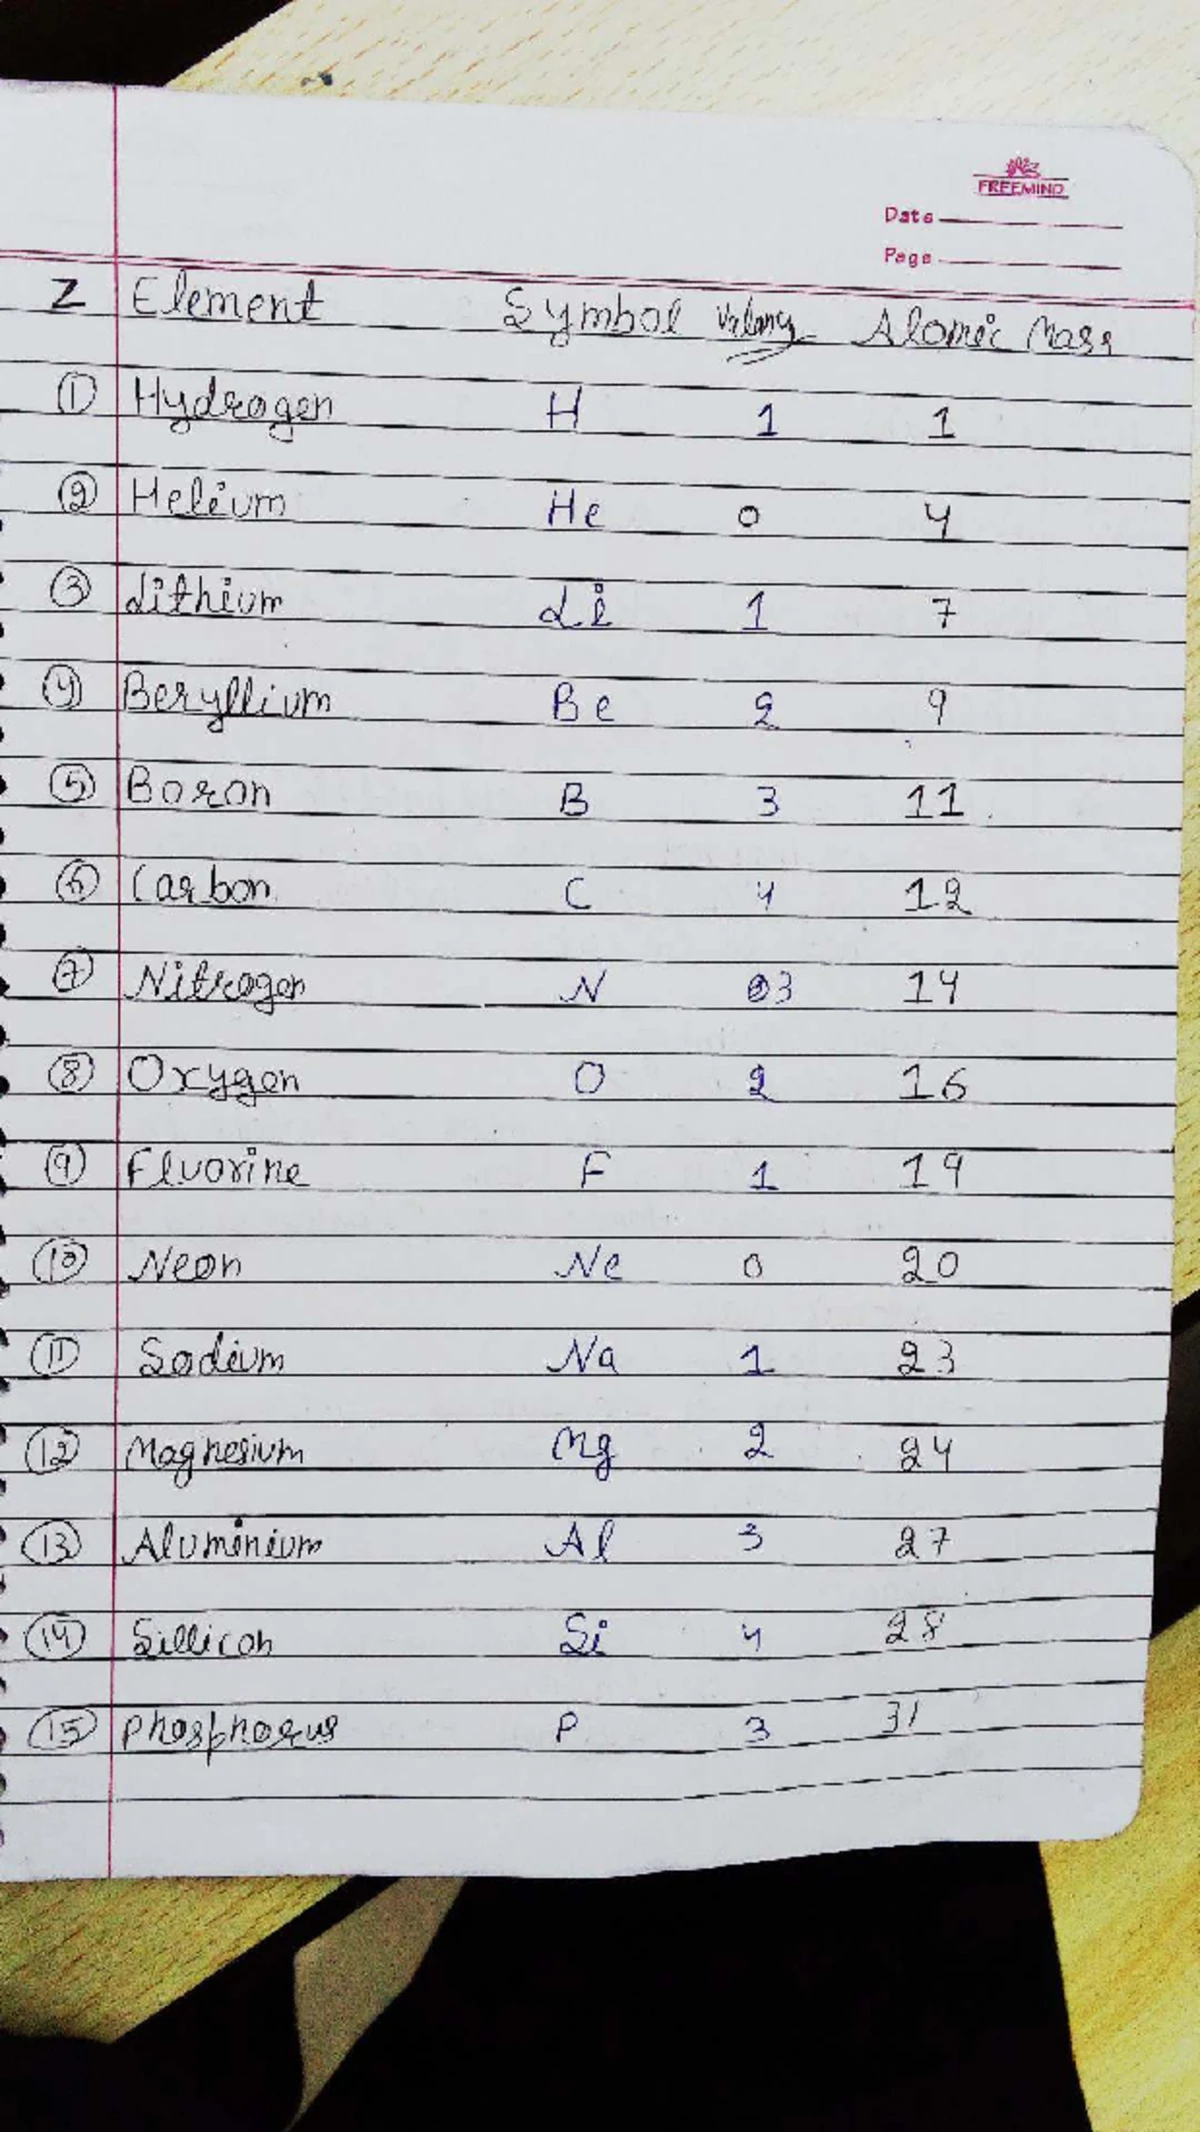 FREEMIND
Date
Page
Z Element Symbol Valancy Atomic Mass
1 Hydrogen H 1 1
2 Helium He 0 4
3 Lithium Li 1 7
4 Beryllium Be 2 9
5 Boron B 3 11
6 Carbon C 4 12
7 Nitrogen N 3 14
8 Oxygen O 2 16
9 Fluorine F 1 19
10 Neon Ne 0 20
11 Sodium Na 1 23
12 Magnesium Mg 2 24
13 Aluminium Al 3 27
14 Sillicon Si 4 28
15 Phosphorus P 3 31